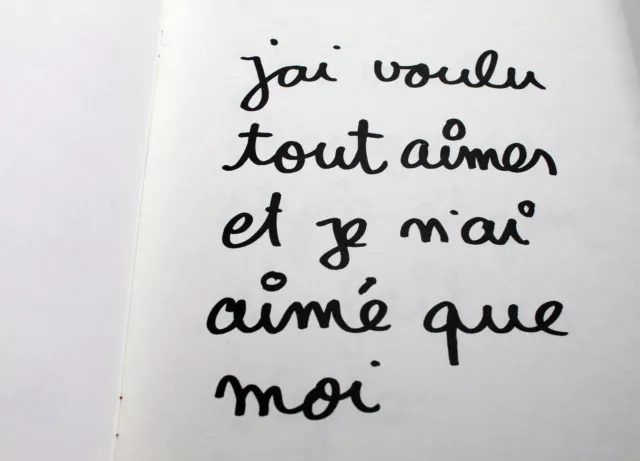 jai voulu
tout aimer
et je n'ai
aimé que
moi